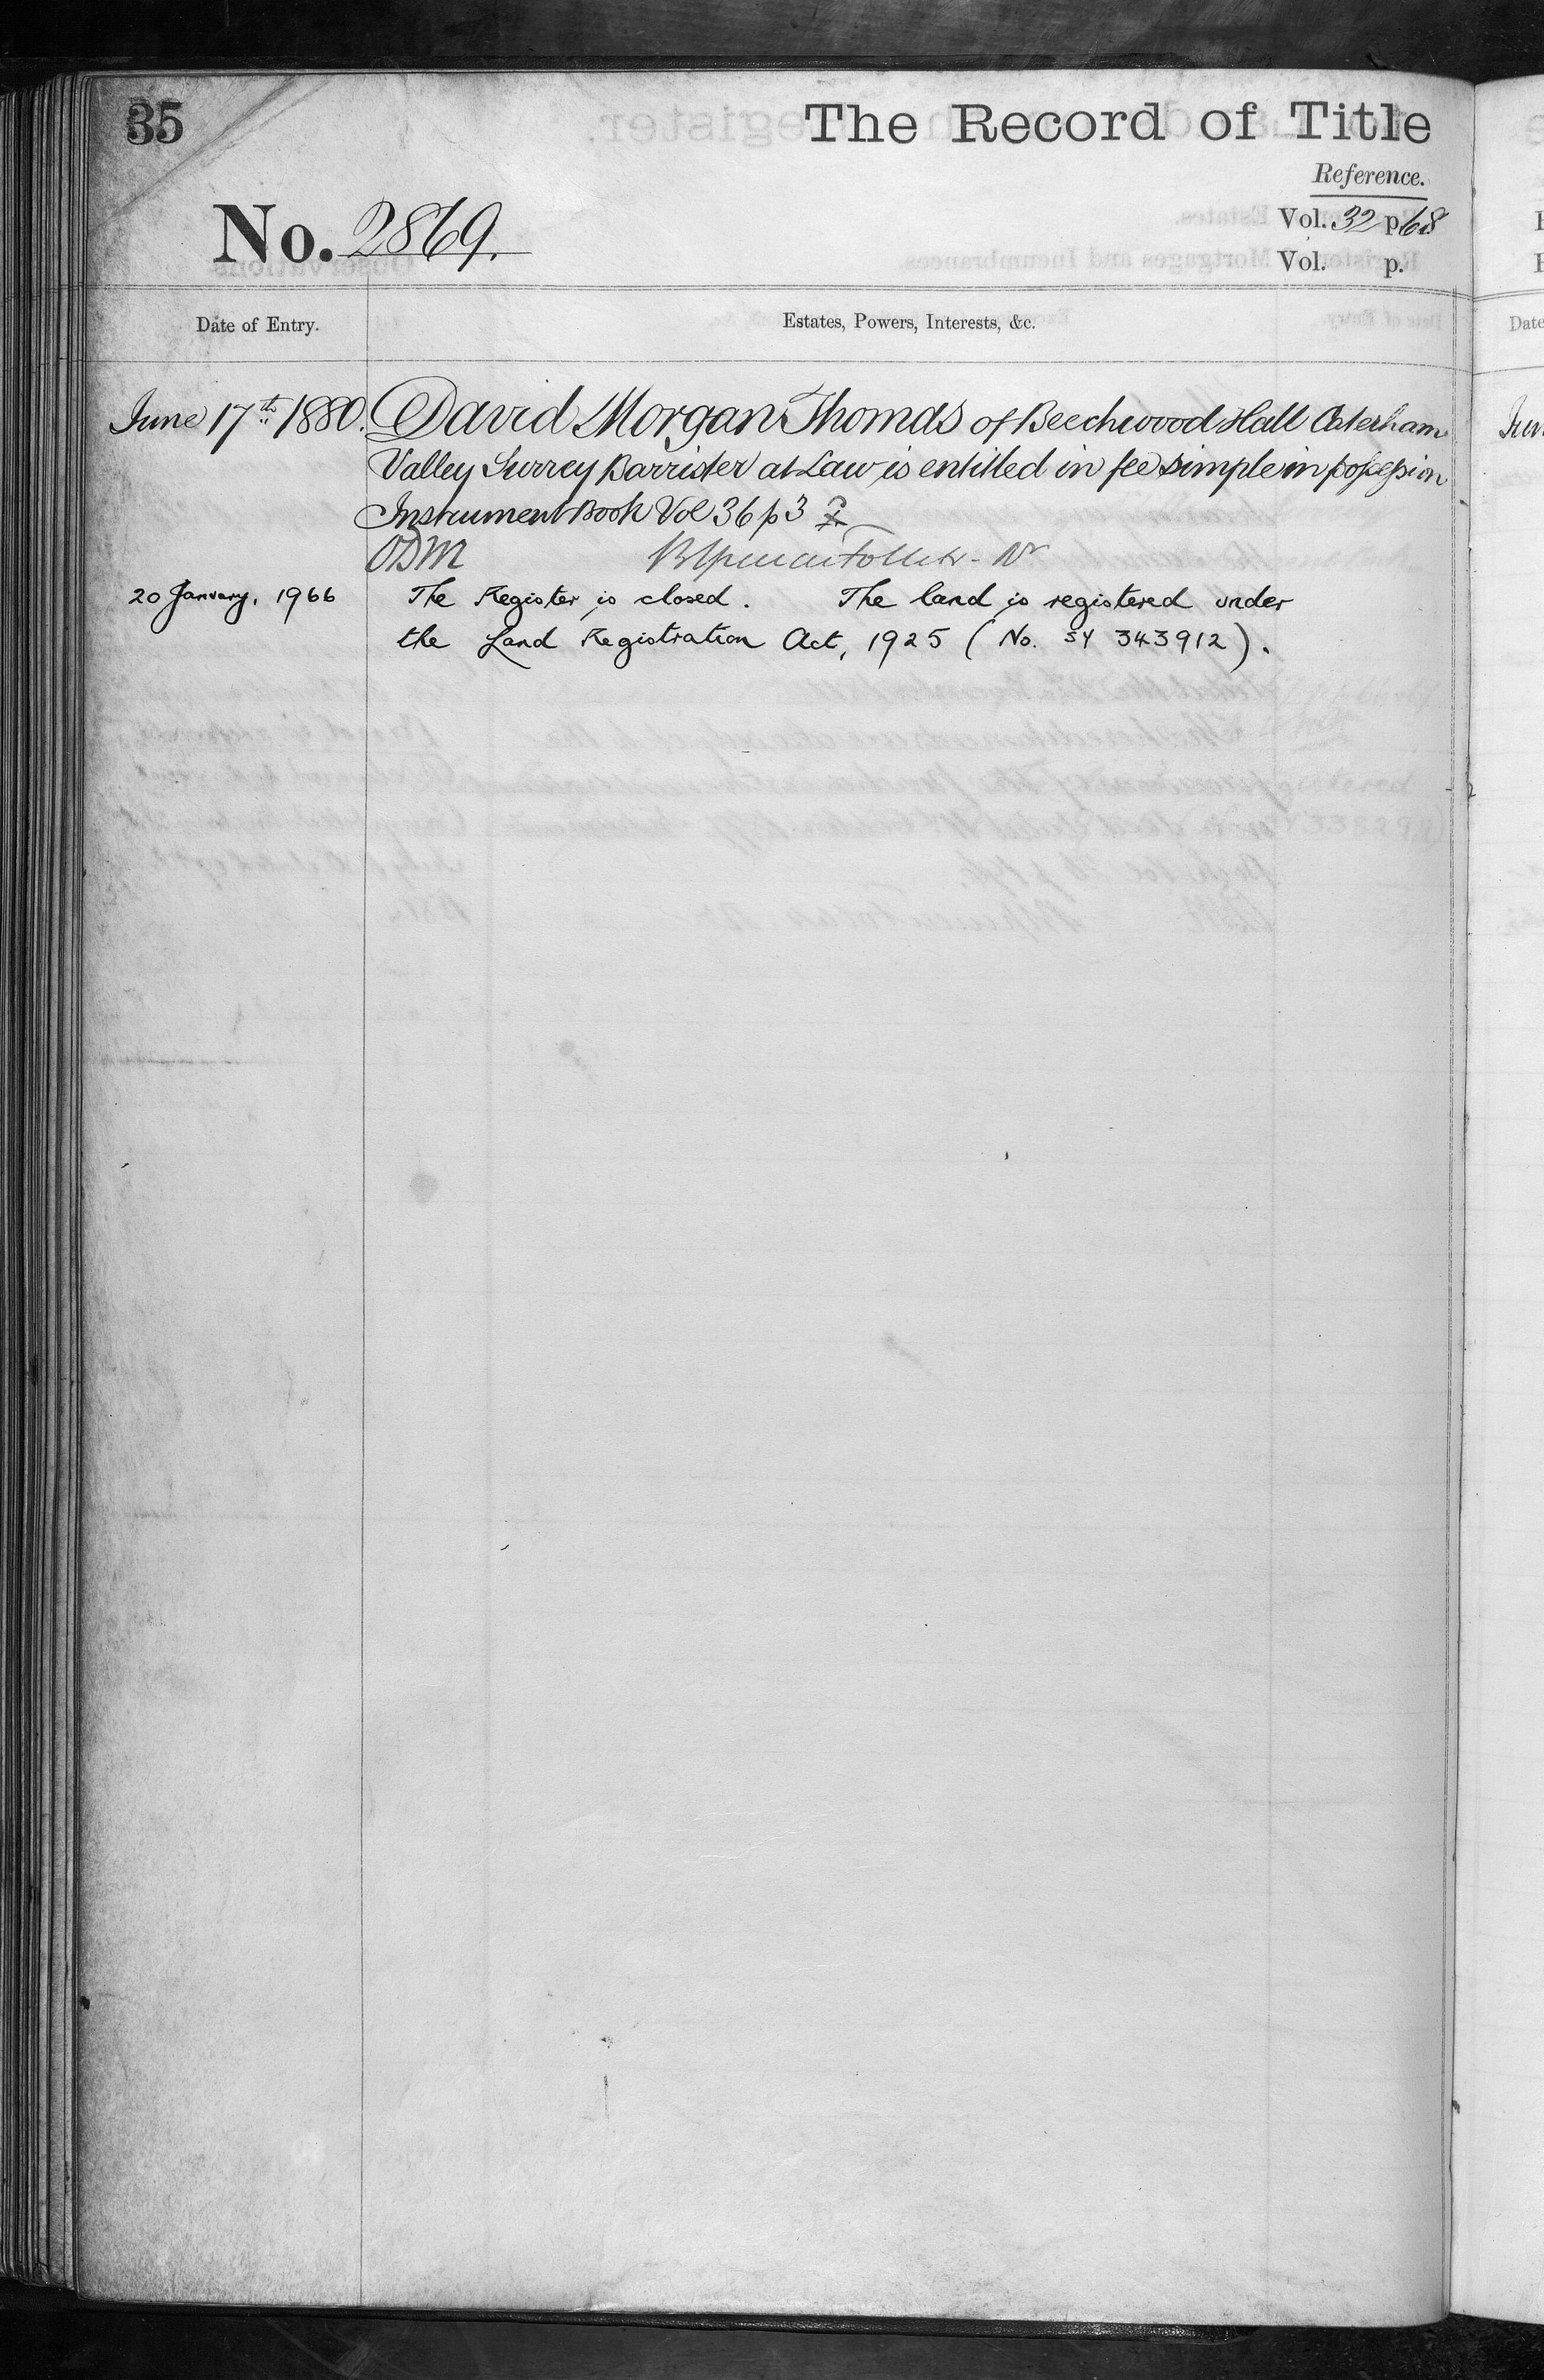 35
The Record of Title
Reference.
No. 2869.
Vol. 32 p. 68
Vol. p.
Date of Entry.
Estates, Powers, Interests, &c.
June 17th 1880. David Morgan Thomas of Beechwood Hall Caterham
Valley Surrey Barrister at Law is entitled in fee simple in possession
Instrument Book Vol 36 p 3
20 January, 1966 The Register is closed. The land is registered under
the Land Registration Act, 1925 (No. SY 343912).